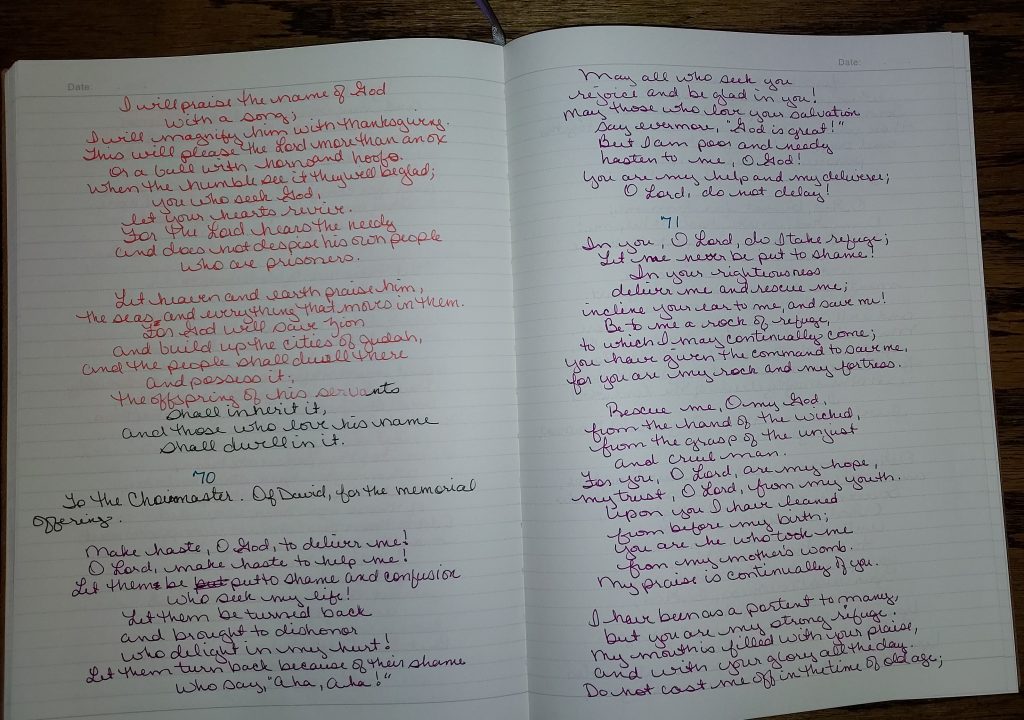 Date:
I will praise the name of God
with a song;
I will magnify him with thanksgiving.
This will please the Lord more than an ox
or a bull with horns and hoofs.
When the humble see it they will be glad;
you who seek God,
let your hearts revive.
For the Lord hears the needy
and does not despise his own people
who are prisoners.
Let heaven and earth praise him,
the seas and everything that moves in them.
For God will save Zion
and build up the cities of Judah,
and the people shall dwell there
and possess it;
the offspring of his servants
shall inherit it,
and those who love his name
shall dwell in it.
70
To the Choirmaster. Of David, for the memorial
offering.
Make haste, O God, to deliver me!
O Lord, make haste to help me!
Let them be put put to shame and confusion
who seek my life!
Let them be turned back
and brought to dishonor
who delight in my hurt!
Let them turn back because of their shame
who say, "Aha, Aha!"
Date:
May all who seek you
rejoice and be glad in you!
May those who love your salvation
say evermore, "God is great!"
But I am poor and needy
hasten to me, O God!
You are my help and my deliverer;
O Lord, do not delay!
71
In you, O Lord, do I take refuge;
Let me never be put to shame!
In your righteousness
deliver me and rescue me;
incline your ear to me, and save me!
Be to me a rock of refuge,
to which I may continually come;
you have given the command to save me,
for you are my rock and my fortress.
Rescue me, O my God,
from the hand of the wicked,
from the grasp of the unjust
and cruel man.
For you, O Lord, are my hope,
my trust, O Lord, from my youth.
Upon you I have leaned
from before my birth;
you are he who took me
from my mother's womb.
My praise is continually of you.
I have been as a portent to many,
but you are my strong refuge.
My mouth is filled with your praise,
and with your glory all the day.
Do not cast me off in the time of old age;